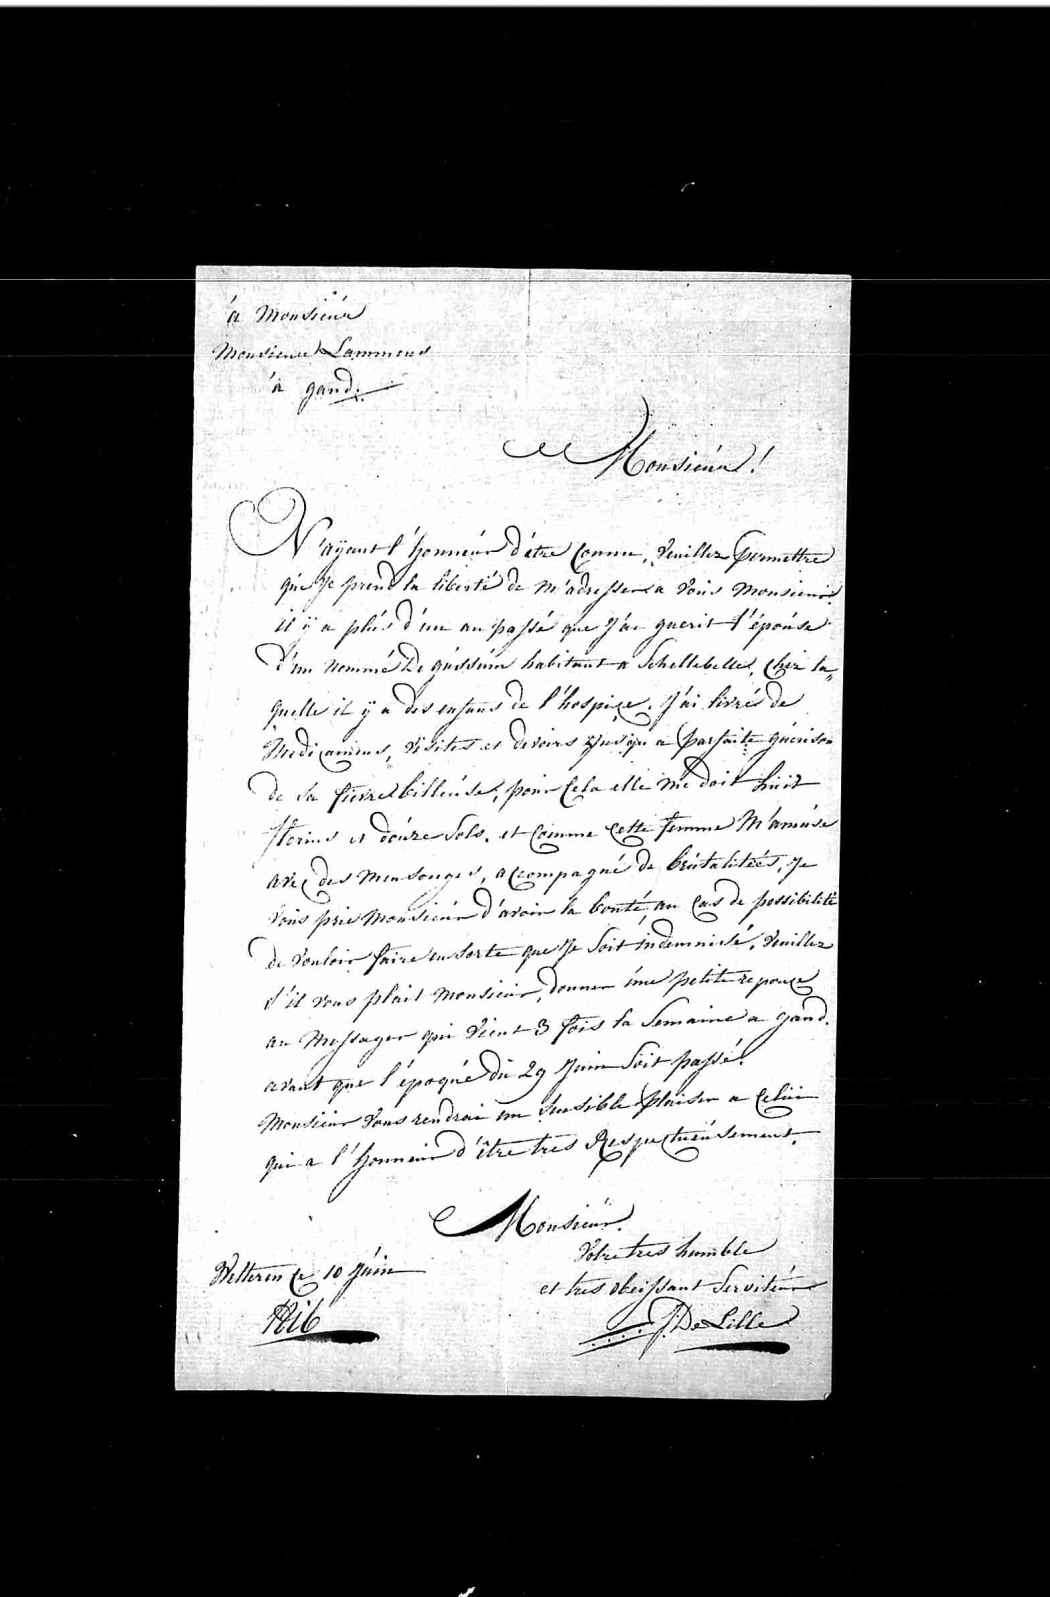 à Monsieúr
Monsieur Lammens
à gand.
Monsieúr!
N'aÿant l'honneúr d'étre Connu, Veuillez permettre
que Je prend la liberté de m'adresser a Vous Monsieur.
il ÿ a plús d'un an passé que J'ai guerit l'épouse
d'un nommé De gússúm habitant a Schellebelle, Chez la„
quelle il ÿ a des enfans de l'hospice. J'ai livrés de
Medicamens, visites et devoirs Jusqu'a parfaite guérison
de sa fievre billeúse, pour Cela elle me doit huit
florins et doúze Sols. et Comme Cette femme M'amúse
avec des mensonges, accompagné de brútalitées, Je
Vous prie Monsieúr d'avoir la bonté au Cas de possibilité
de Vouloir faire ensorte que Je Soit indemnisé, Veuillez
s'il vous plait Monsieur, donner úne petite reponce
au Messager qui Vient 3 fois la Semaine a gand.
avant que l'époqué du 29 Juin Soit passé.
Monsieur Vous rendrai un Sensible plaisir a Celui
qui a l'honneur d'être tres Respectueúsement.
Monsieúr.
Votre tres humble
et tres obeissant Serviteúr
Wetteren Ce 10 Júin
J: De Lille